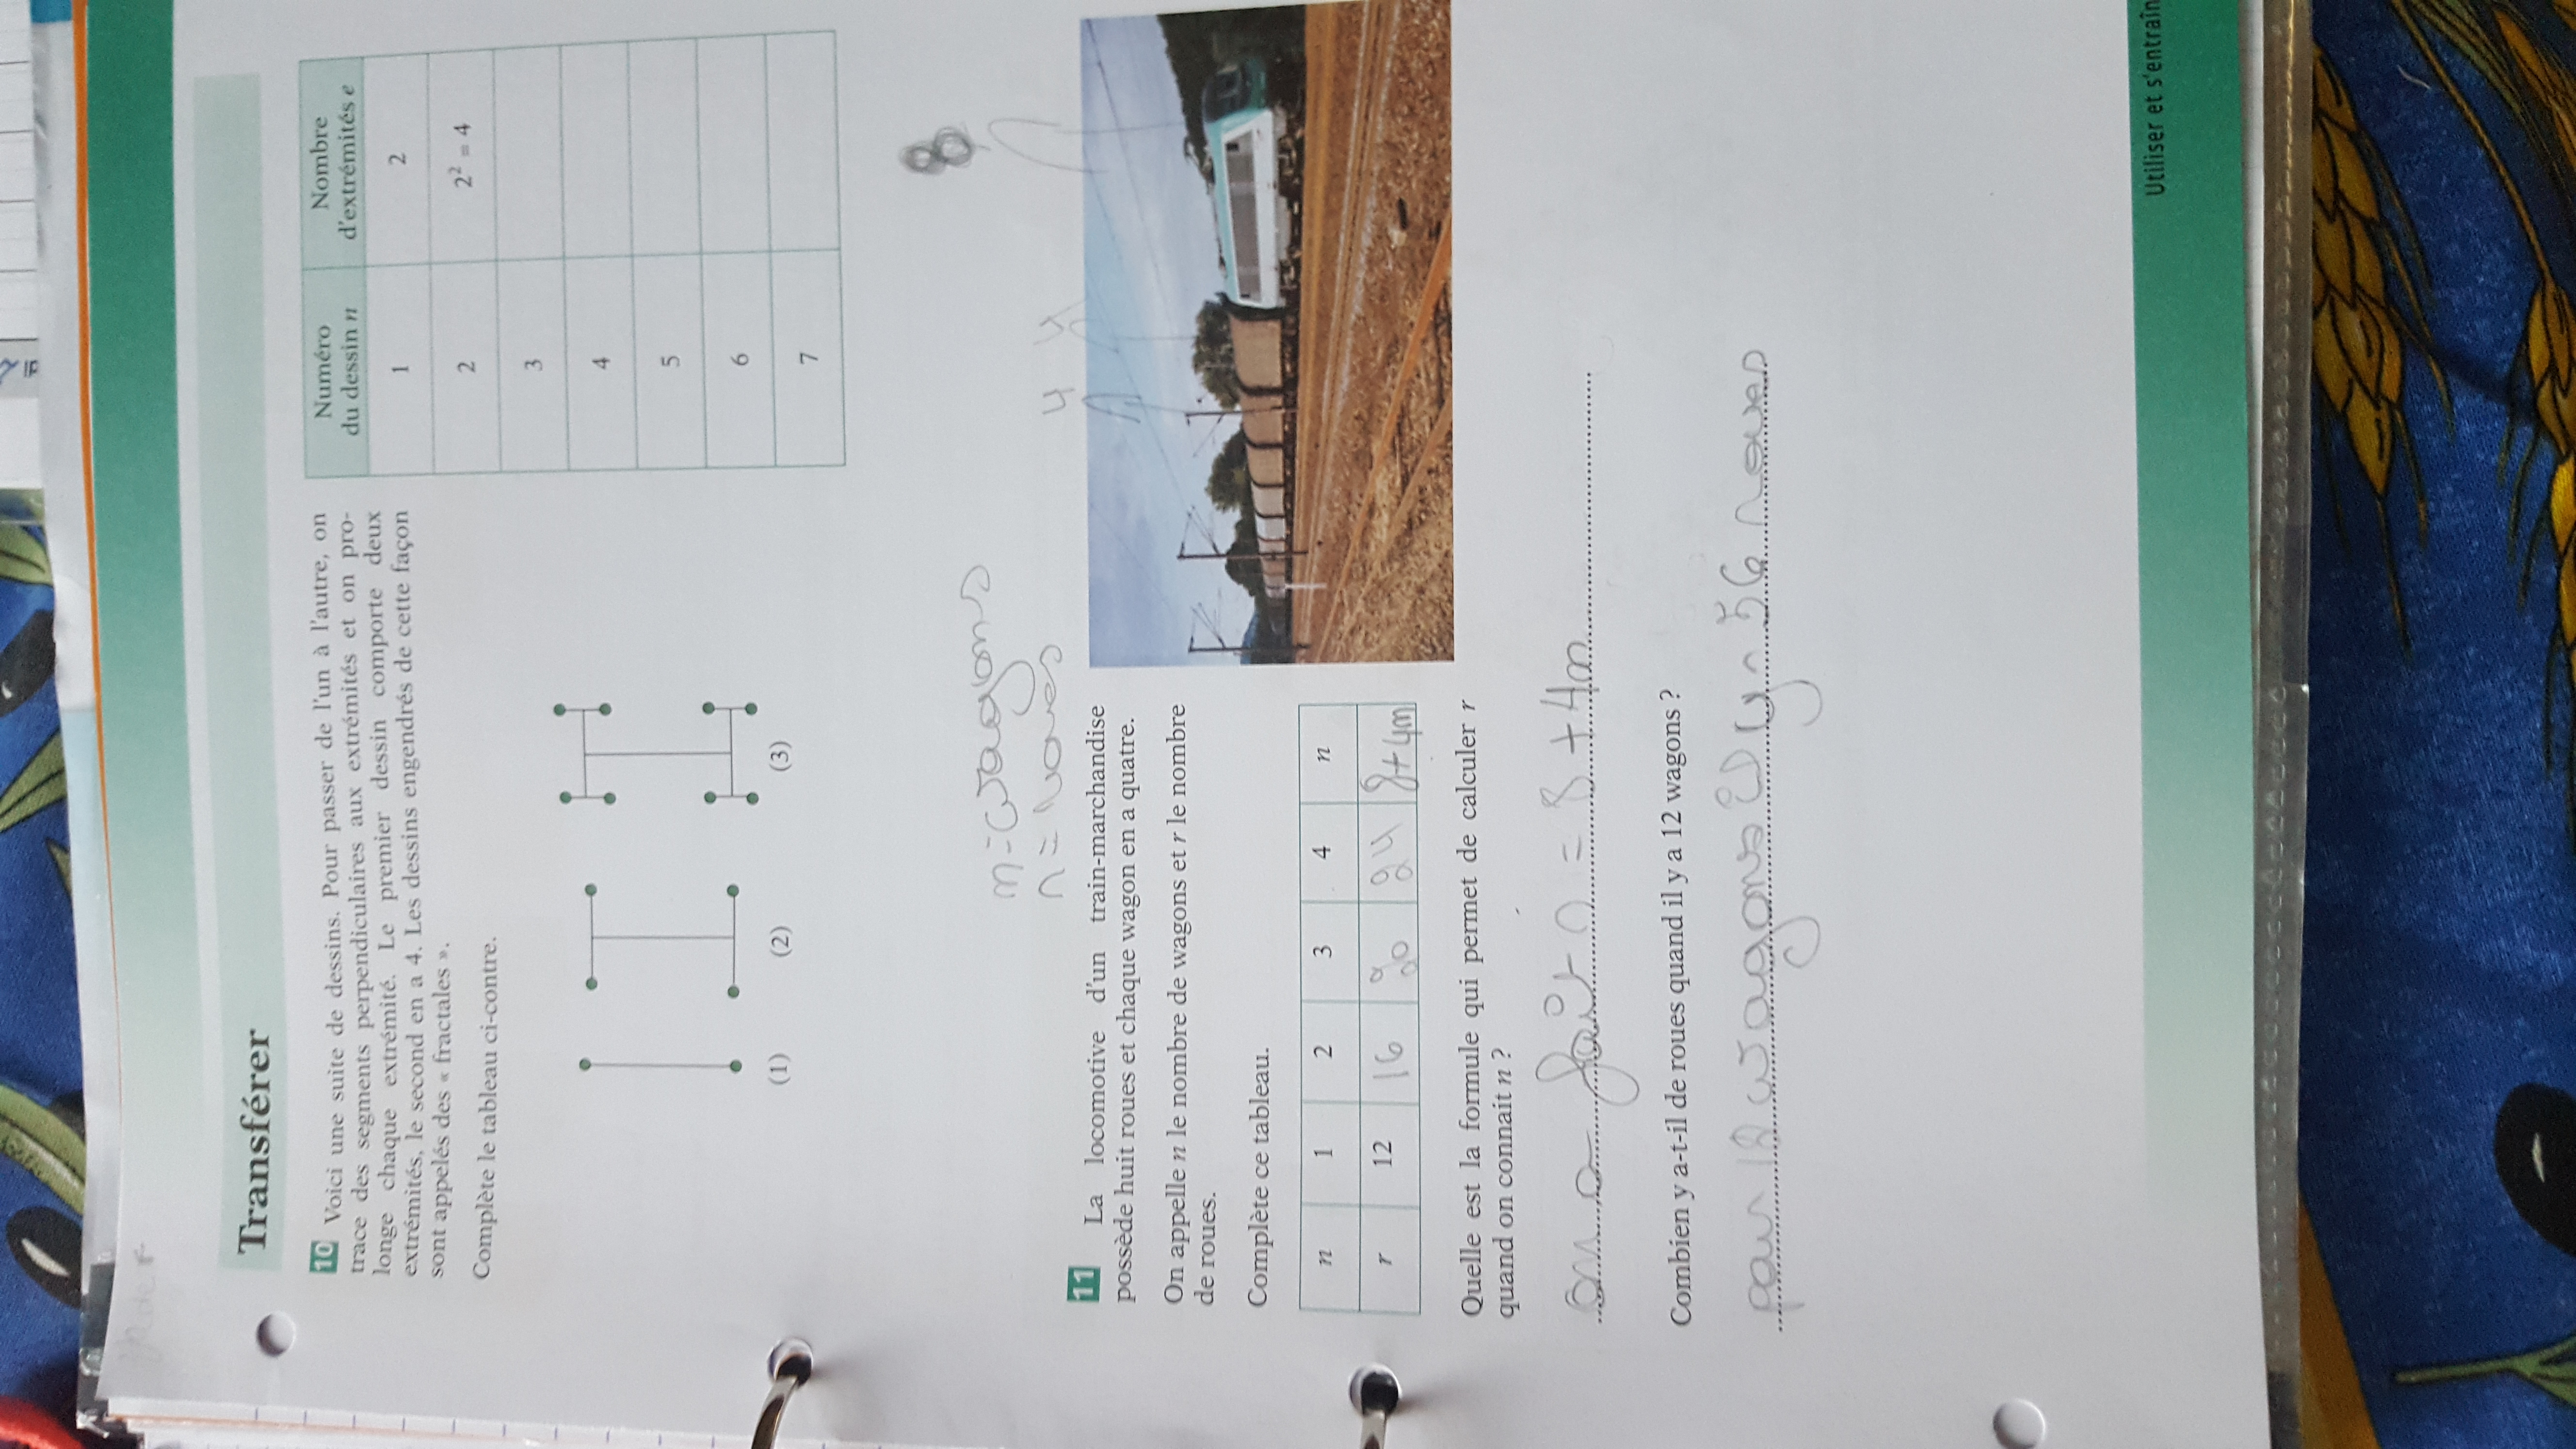 Transférer
10 Voici une suite de dessins. Pour passer de l'un à l'autre, on
trace des segments perpendiculaires aux extrémités et on pro-
longe chaque extrémité. Le premier dessin comporte deux
extrémités, le second en a 4. Les dessins engendrés de cette façon
sont appelés des « fractales ».
Complète le tableau ci-contre.
(1) (2) (3)
Numéro du dessin n | Nombre d'extrémités e
1 2
2 2² = 4
3
4
5
6
7
8
n = wagons
r = roues
4 4
11 La locomotive d'un train-marchandise
possède huit roues et chaque wagon en a quatre.
On appelle n le nombre de wagons et r le nombre
de roues.
Complète ce tableau.
n 1 2 3 4 n
r 12 16 20 24 8+4n
Quelle est la formule qui permet de calculer r
quand on connait n ?
on a fait r = 8 + 4n
Combien y a-t-il de roues quand il y a 12 wagons ?
pour 12 wagons il y a 56 roues
Utiliser et s'entraîn